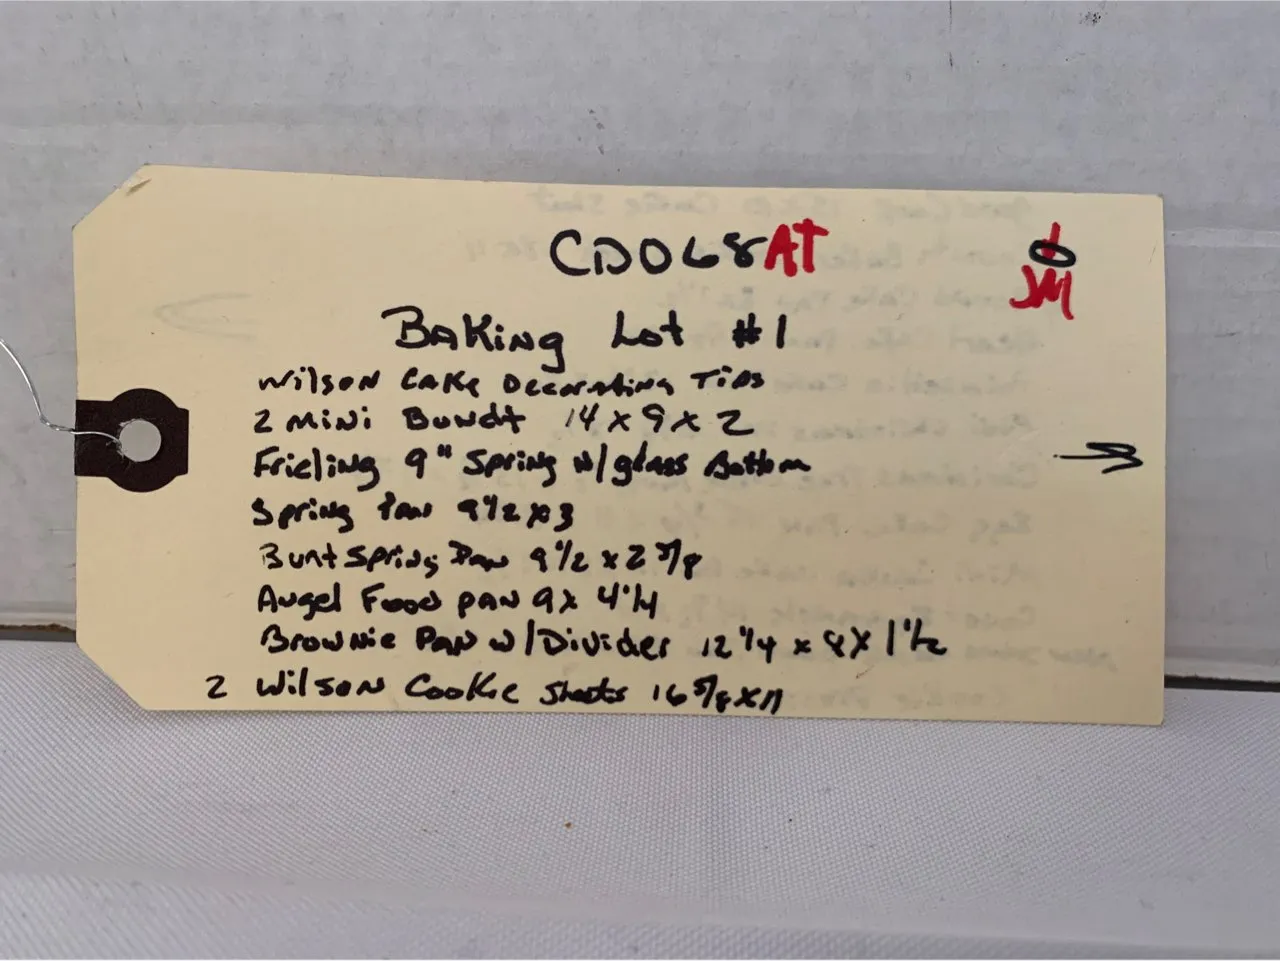 CD068AT
JM
Baking Lot #1
Wilson Cake Decorating Tips
2 Mini Bundt 14 x 9 x 2
Frieling 9" Spring w/glass Bottom
Spring Pan 9 1/2 x 3
Bunt Spring Pan 9 1/2 x 2 5/8
Angel Food pan 9 x 4 1/4
Brownie Pan w/Divider 12 1/4 x 8 x 1 1/2
2 Wilson Cookie Sheets 16 5/8 x 11